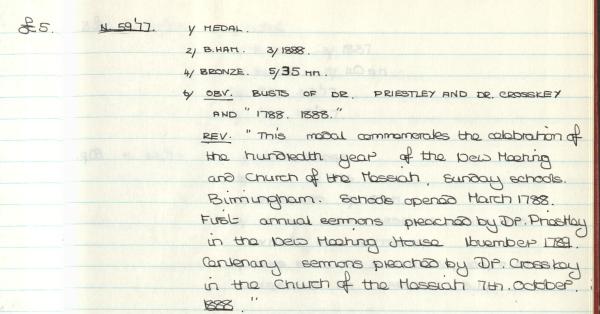 £5. N.59'77. 1/ MEDAL.
2/ B.HAM. 3/ 1888.
4/ BRONZE. 5/ 35 mm.
6/ OBV. BUSTS OF DR. PRIESTLEY AND DR. CROSSKEY
AND "1788. 1888."
REV. "This medal commemorates the celebration of
the hundredth year of the New Meeting
and Church of the Messiah, Sunday schools.
Birmingham. Schools opened March 1788.
First annual sermons preached by DR. Priestley
in the New Meeting House November 1789.
Centenary sermons preached by DR. Crosskey
in the Church of the Messiah 7th. October.
1888."